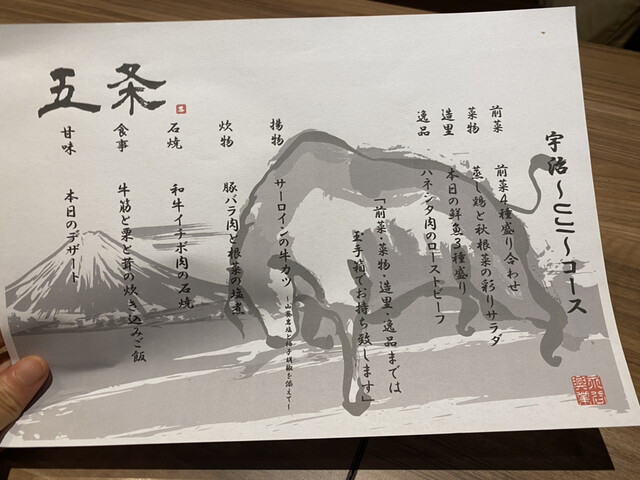 宇治〜UJI〜コース
前菜 前菜4種盛り合わせ
菜物 蒸し鶏と秋根菜の彩りサラダ
造里 本日の鮮魚3種盛り
逸品 ハネシタ肉のローストビーフ
「前菜・菜物・造里・逸品までは
玉手箱でお持ち致します」
揚物 サーロインの牛カツ 〜山葵岩塩と柚子胡椒を添えて〜
炊物 豚バラ肉と根菜の塩煮
石焼 和牛イチボ肉の石焼
食事 牛筋と栗と茸の炊き込みご飯
甘味 本日のデザート
五条